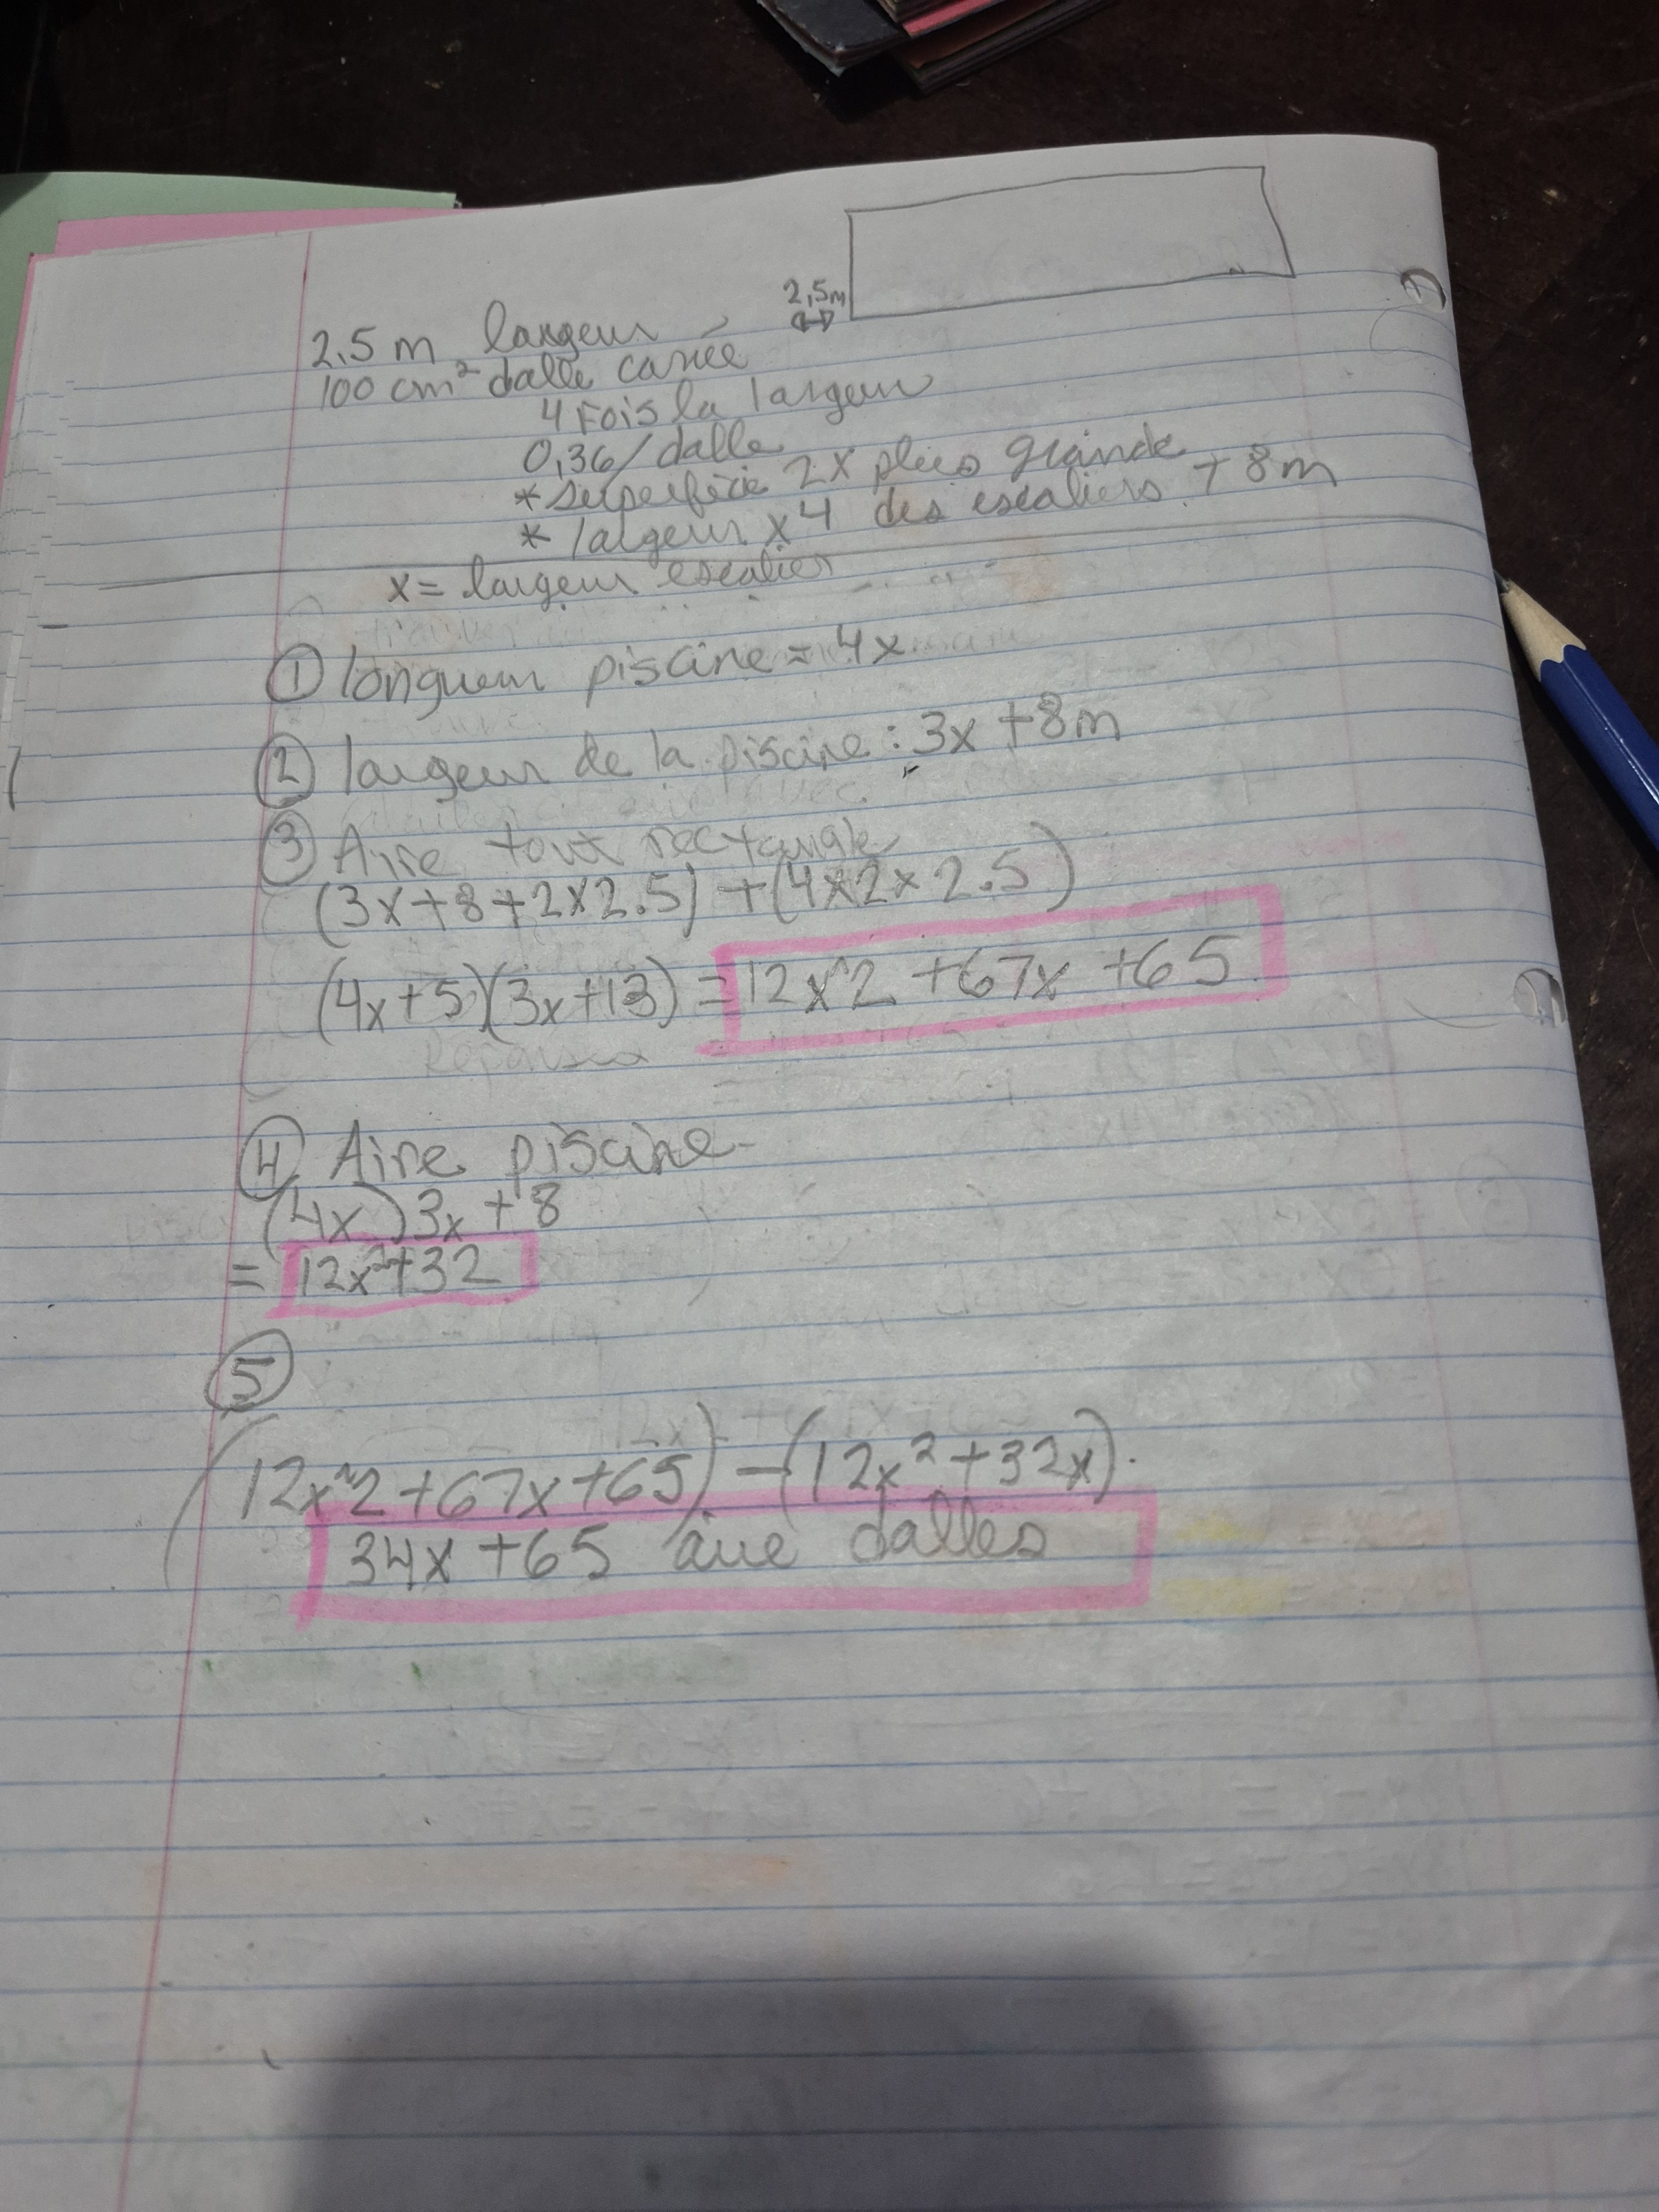 2,5m
2.5 m largeur
100 cm² dalle carrée
4 Fois la largeur
0,36/dalle
* superficie 2x plus grande
* largeur x4 des escaliers + 8m
x = largeur escalier
① longueur piscine = 4x
② largeur de la piscine : 3x + 8m
③ Aire tout rectangle
(3x+8+2x2.5) + (4x2x2.5)
(4x+5)(3x+13) = 12x^2 + 67x + 65
④ Aire piscine
(4x)3x + 8
= 12x²+32
⑤
(12x^2+67x+65) - (12x²+32x).
34x + 65 aire dalles